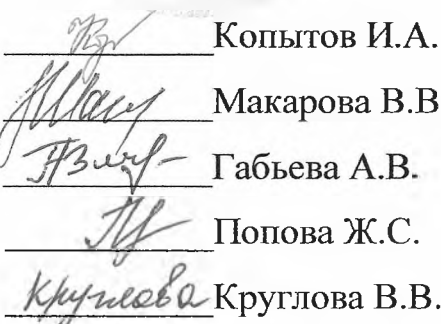 Копытов И.А.
Макарова В.В
Габьева А.В.
Попова Ж.С.
Круглова Круглова В.В.